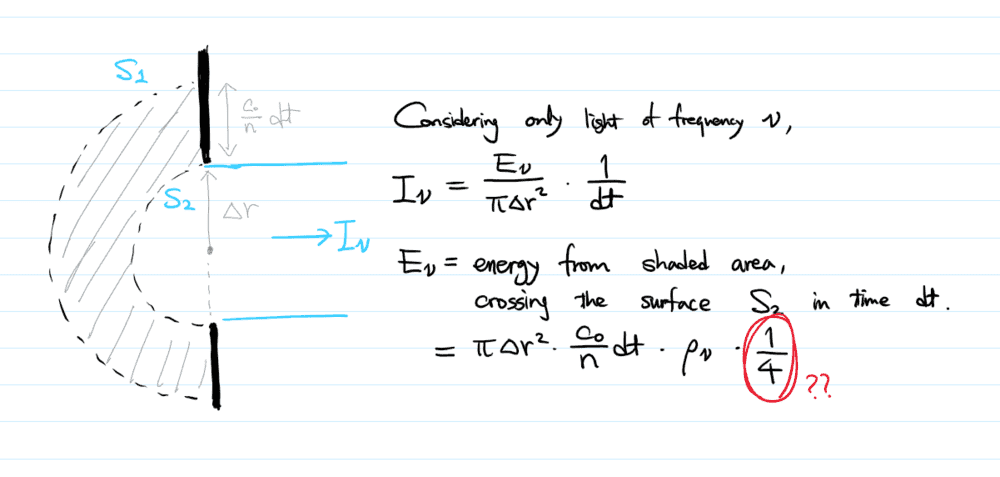 S₁
c₀/n dt
S₂
Δr
→ I_ν
Considering only light of frequency ν,
I_ν = E_ν/πΔr² · 1/dt
E_ν = energy from shaded area,
crossing the surface S₂ in time dt.
= πΔr² · c₀/n dt · ρ_ν · 1/4 ??